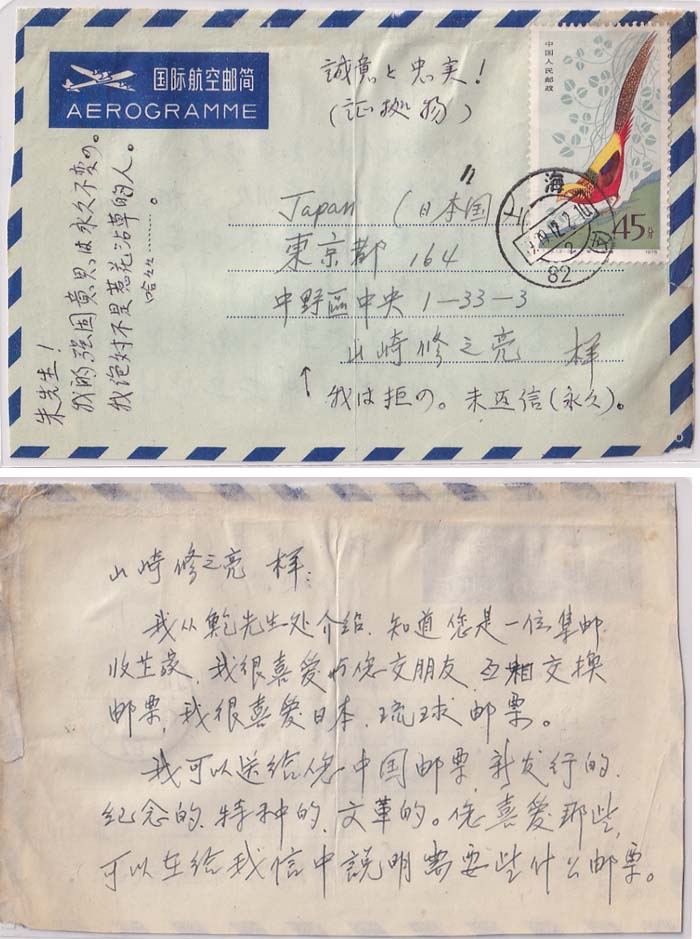 国际航空邮简
AEROGRAMME
中国人民邮政
45分
1979
誠意と忠実！
（証拠物）
海
82
Japan （日本国）
東京都 164
中野區中央 1-33-3
山崎修之亮 様
↑ 我は拒の。未返信（永久）。
朱先生！
我的强固意思は永久不变の。
我绝对不是惹花沾草的人。
哈哈………。
山崎修之亮 様：
我从鲍先生处介绍，知道您是一位集邮
收生家，我很喜爱与您交朋友，互相交换
邮票，我很喜爱日本、琉球邮票。
我可以送给您中国邮票，新发行的、
纪念的、特种的、文革的。您喜爱那些，
可以在给我信中説明需要些什么邮票。